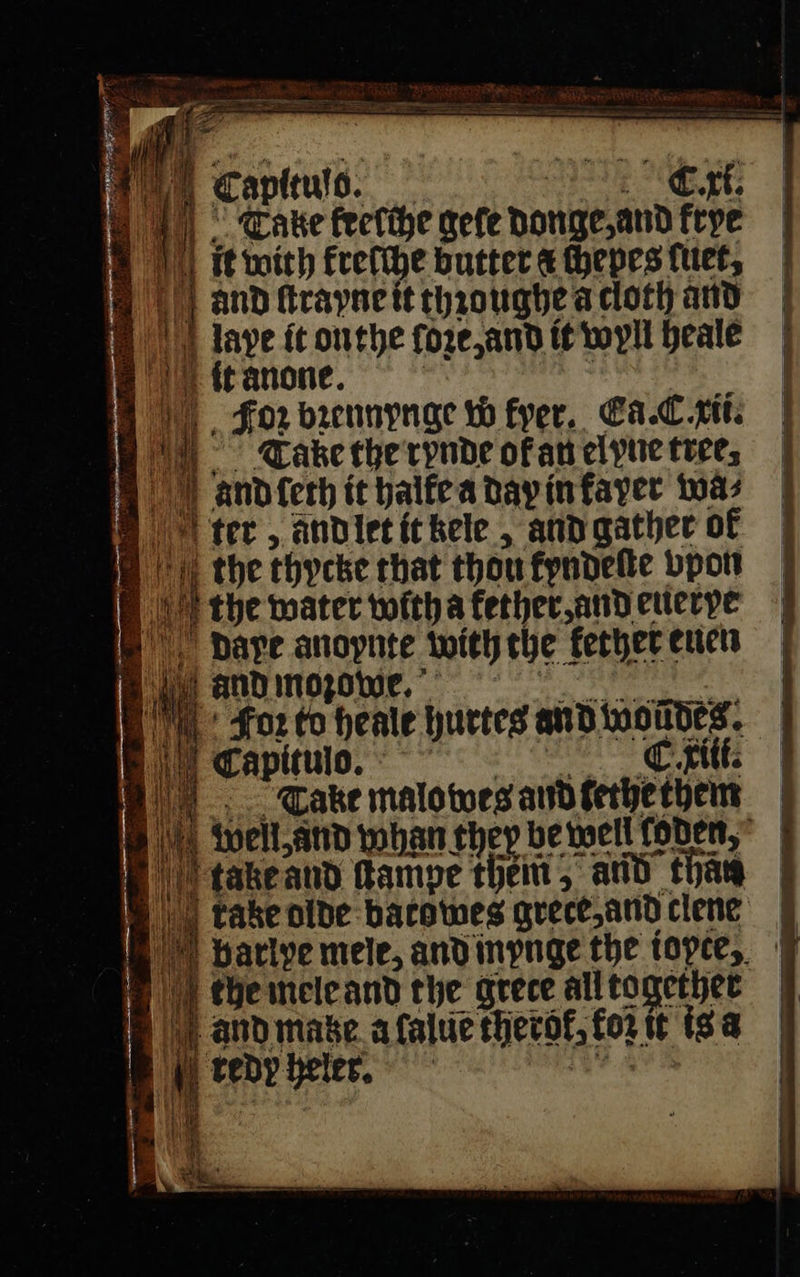 Capitulo. C.xi.
Take freſſhe geſe donge,and frye
it with freſſhe butter & ſhepes ſuet,
and ſtrayne it thꝛoughe a cloth and
laye it on the ſoꝛe,and it wyll heale
it anone.
Foꝛ bꝛennynge wͭ fyer. Ca.C.xii.
Take the rynde of an elyne tree,
and ſeth it halfe a day in fayer wa⸗
ter , and let it kele , and gather of
the thycke that thou fyndeſte vpon
the water with a fether,and euerye
daye anoynte with the fether euen
and moꝛowe.
Foꝛ to heale hurtes and woūdes.
Capitulo. C.xiii.
Take malowes and ſethe them
well,and whan they be well ſoden,
take and ſtampe them , and than
take olde barowes grece,and clene
barlye mele, and mynge the ioyce,
the mele and the grece all together
and make a ſalue therof, foꝛ it is a
redy heler.